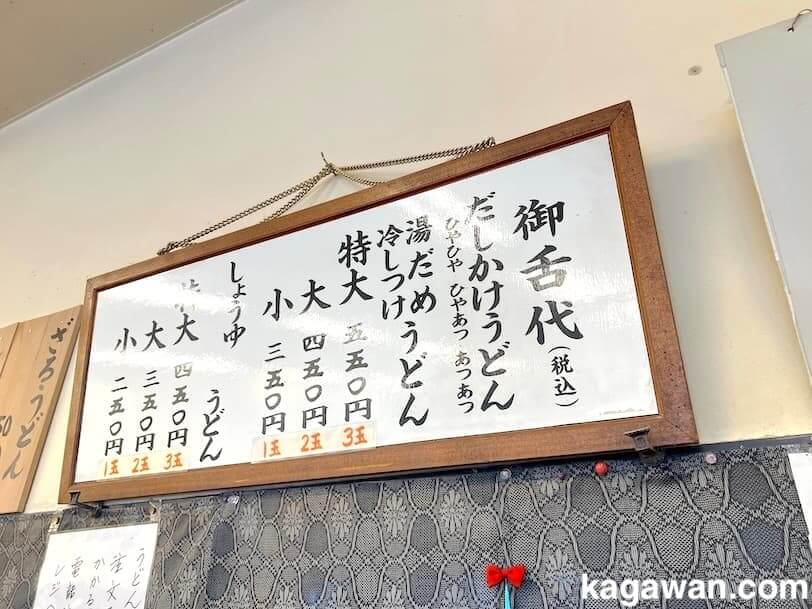 御舌代(税込)
だしかけうどん
ひやひや ひやあつ あつあつ
湯だめうどん
冷しつけ
特大 五五〇円 3玉
大 四五〇円 2玉
小 三五〇円 1玉
しょうゆ うどん
特大 四五〇円 3玉
大 三五〇円 2玉
小 二五〇円 1玉
ざるうどん
50
うどん
注文
かかる
電話
レジ
kagawan.com